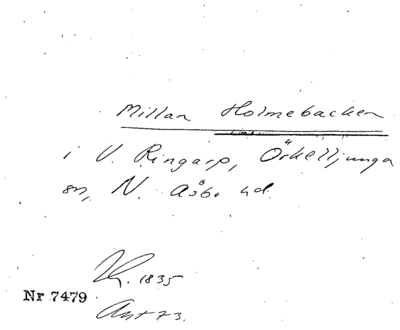 Millan Holmebacken
i V. Ringarp, Örkelljunga
sn, N. Åsbo hd.
1835
Nr 7479
Ant 73.